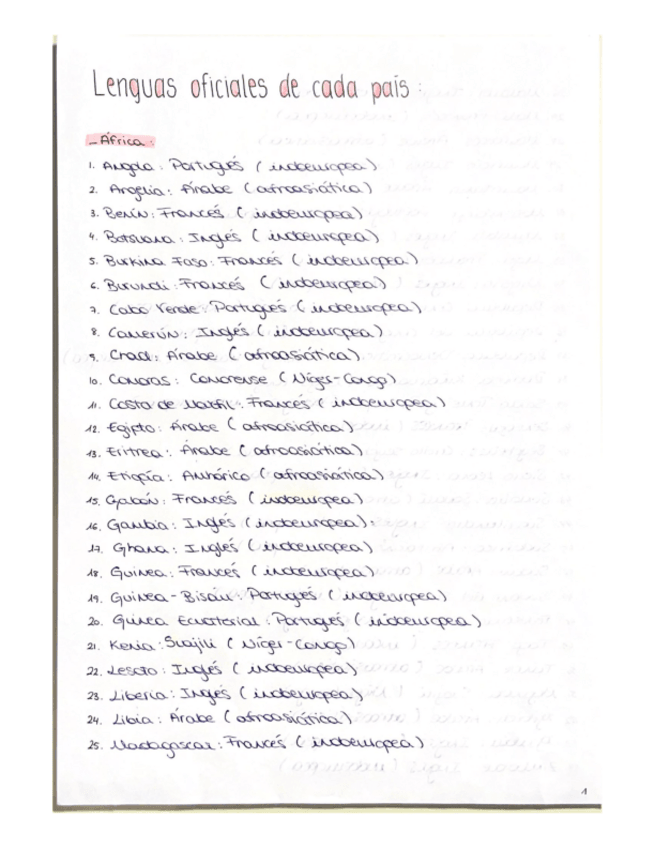 Lenguas oficiales de cada país:
- África:
1. Angola: Portugués (indoeuropea)
2. Argelia: Árabe (afroasiática)
3. Benín: Francés (indoeuropea)
4. Botsuana: Inglés (indoeuropea)
5. Burkina Faso: Francés (indoeuropea)
6. Burundi: Francés (indoeuropea)
7. Cabo Verde: Portugués (indoeuropea)
8. Camerún: Inglés (indoeuropea)
9. Chad: Árabe (afroasiática)
10. Comoras: Comorense (Níger-Congo)
11. Costa de Marfil: Francés (indoeuropea)
12. Egipto: Árabe (afroasiática)
13. Eritrea: Árabe (afroasiática)
14. Etiopía: Amhárico (afroasiática)
15. Gabón: Francés (indoeuropea)
16. Gambia: Inglés (indoeuropea).
17. Ghana: Inglés (indoeuropea)
18. Guinea: Francés (indoeuropea)
19. Guinea-Bisáu: Portugués (indoeuropea)
20. Guinea Ecuatorial: Portugués (indoeuropea)
21. Kenia: Suajili (Níger-Congo)
22. Lesoto: Inglés (indoeuropea)
23. Liberia: Inglés (indoeuropea)
24. Libia: Árabe (afroasiática)
25. Madagascar: Francés (indoeuropea)
1